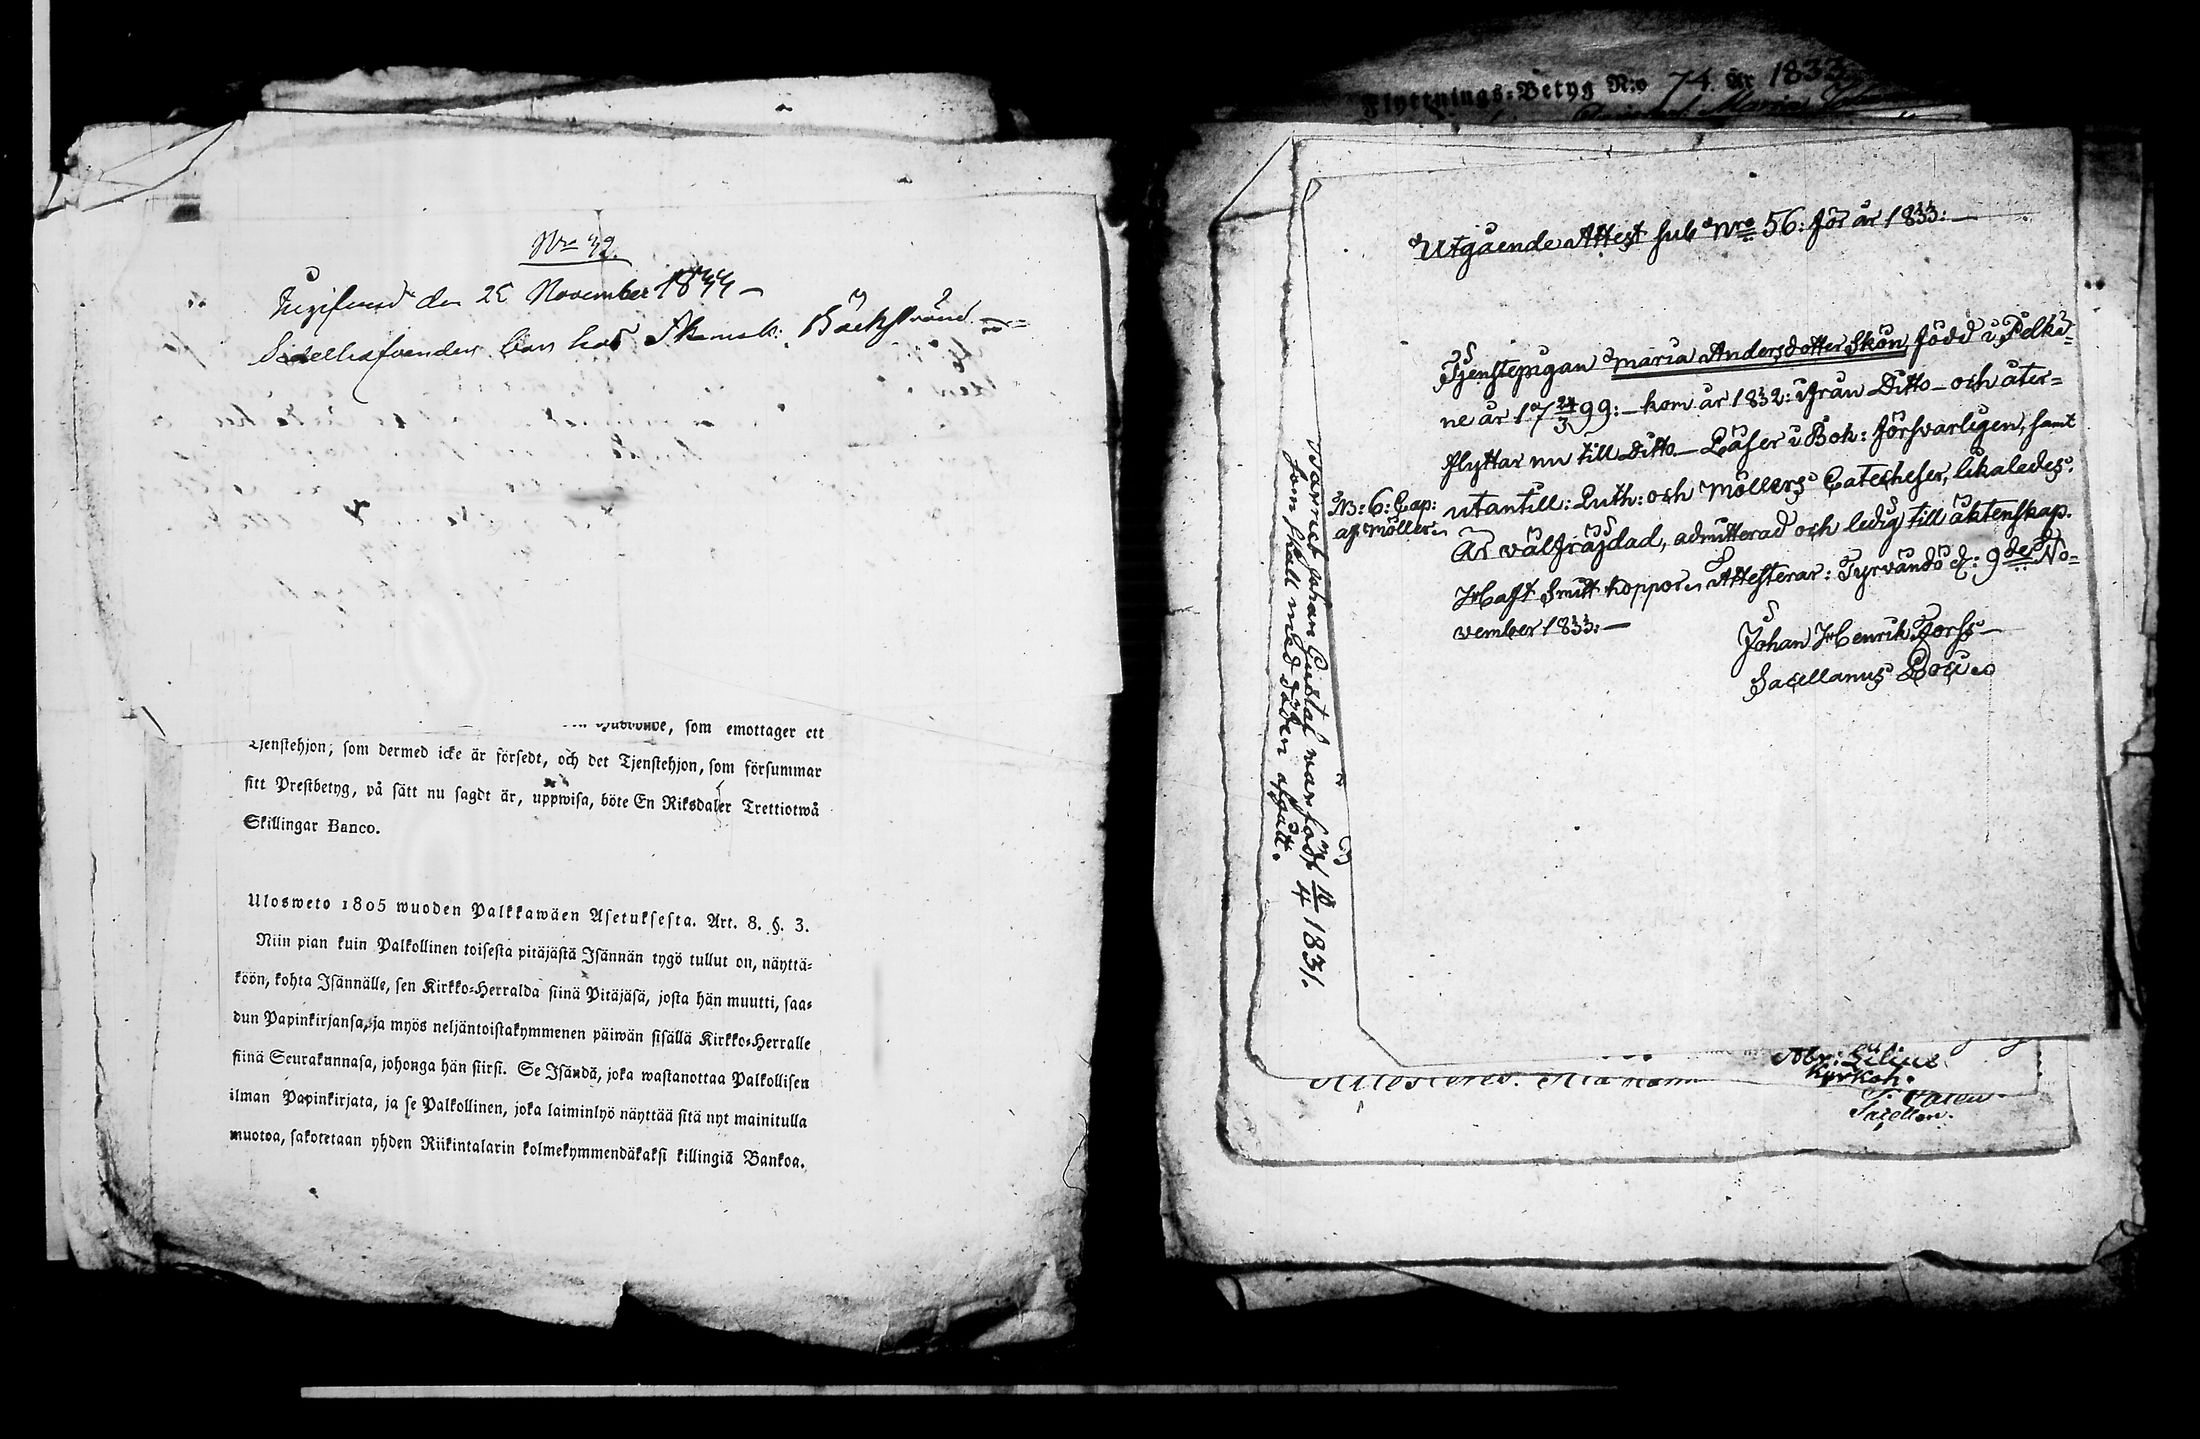 Nro 42.
den 25 November 1833 –
hos Bäckstrand
som emottager ett
Tjenstehjon, som dermed icke är försedt, och det Tjenstehjon, som försummar
sitt Prestbetyg, på sätt nu sagdt är, uppwisa, böte En Riksdaler Trettiotwå
Skillingar Banco.
Ulosweto 1805 wuoden Palkkawäen Asetuksesta. Art. 8. §. 3.
Niin pian kuin Palkollinen toisesta pitäjästä Isännän tygö tullut on, näyttä-
köön, kohta Isännälle, sen Kirkko-Herralda siinä Pitäjäsä, josta hän muutti, saa-
dun Papinkirjansa, ja myös neljäntoistakymmenen päiwän sisällä Kirkko-Herralle
siinä Seurakunnasa, johonga hän siirsi. Se Isändä, joka wastanottaa Palkollisen
ilman Papinkirjata, ja se Palkollinen, joka laiminlyö näyttää sitä nyt mainitulla
muotoa, sakotetaan yhden Riikintalarin kolmekymmendäkaksi killingiä Bankoa.
Flyttnings-Betyg N:o 74. År 1833
Maria
Utgående Attest sub Nro 56: för år 1833: —
Tjenstepigan Maria Andersdotter Skön, född i Pelkä-
ne år 17 24/3 99: — kom år 1832: ifrån Ditto — och åter-
flyttar nu till Ditto — Läser i Bok: försvarligen, samt
utantill: Luth: och Möllers Catecheser, likaledes.
NB: 6: Cap:
af Möller.
Är välfräjdad, admitterad och ledig till äktenskap.
Haft Smittkoppor. Attesterar: Tyrvändö d: 9de No-
vember 1833: —
Johan Henrik Forss —
Sacellanus Loci
Barnet Johan Gustaf var född 10/4 1831.
som skall med döden afgått.
Attesteres.
Kyrkoh.
Sacellan.